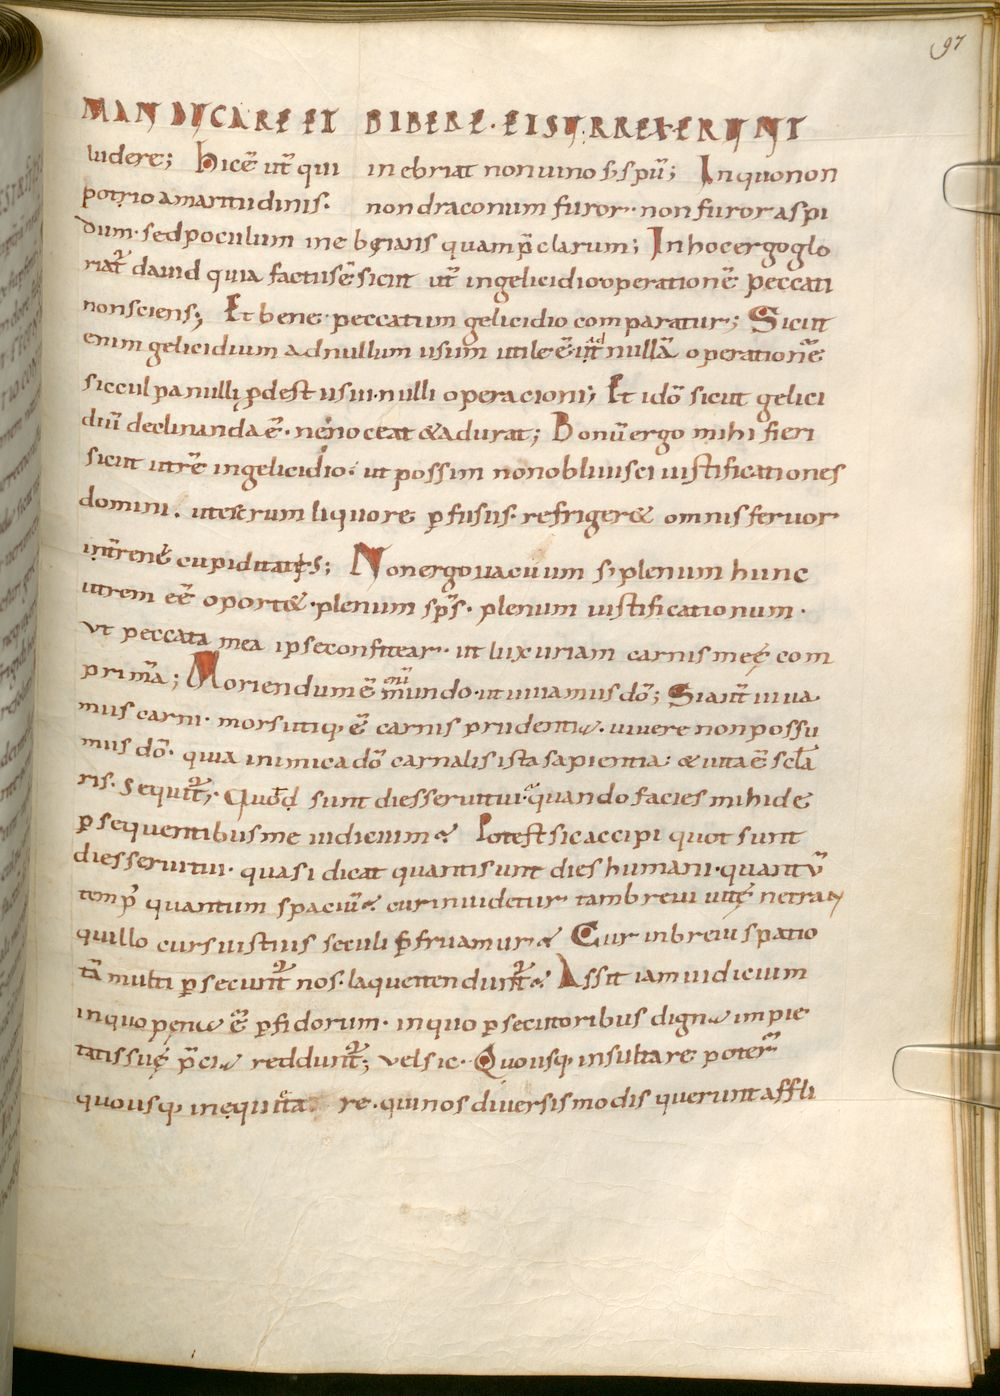 97
MANDUCARE ET BIBERE · ET SURREXERUNT
ludere; Hic ē ut̄ qui inebriat non vino s; spū; In quo non
potrio amaritudinis. non draconum furor · non furor aspi
dum · sed poculum inebrians quam p̄clarum; In hoc ergo glo
riat̄ david quia factus ē sicut ut̄ in gelicidio operationē peccati
non sciens; Et bene · peccatum gelicidio comparatur; Sicut
enim gelicidium ad nullum usum utile ē ut ad nullā operationē
sic culpa nulli ꝓdest usui · nulli operacioni; Et idō sicut gelici
diū declinanda ē · ne noceat & adurat; Bonū ergo mihi fieri
sicut utrē in gelicidio · ut possim non oblivisci iustificationes
domini . uteserum liquore ꝑfusus · refriger& omnis fervor
int̄rene cupiditatis; Non ergo vacuum s; plenum hunc
utrem eē oport& · plenum sp̄s · plenum iustificationum ·
Ut peccata mea ipse confitear · ut luxuriam carnis meę com
primā; Moriendum ē mundo · ut vivamus dō; Si aut̄ viva
mus carni · mors utiq; ē carnis prudentia · vivere non possu
mus dō · quia inimica dō carnalis ista sapientia · & vita ē scl̄a
ris · Sequit̄; Quod sunt dies servi tui · quando facies mihi de
ꝑsequentibus me iudicium · Potest sic accipi quot sunt
dies servi tui · quasi dicat quanti sunt dies humani · quantū
temp̄ quantum spaciū · cur invidetur tam brevi vitę ne tran
quillo cursu istius seculi ꝑfruamur · Cur in brevi spatio
tā multi ꝑsecunt̄ nos · laque tendunt̄ · Assit iam iudicium
in quo pene ē ꝑfidorum · in quo ꝑsecutoribus digna impie
tatis suę p̄cia reddunt̄; vel sic · Quousq; insultare poter̄
quousq; inequita re · qui nos diversis modis querunt affli